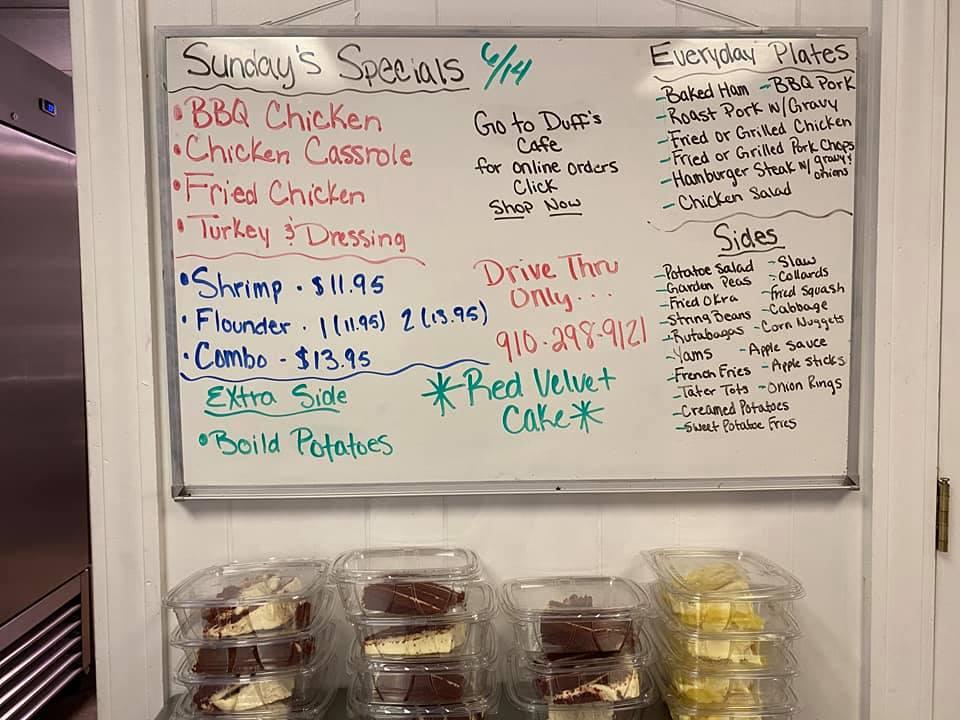 Sunday's Specials 6/14
• BBQ Chicken
• Chicken Cassrole
• Fried Chicken
• Turkey & Dressing
• Shrimp - $11.95
• Flounder - 1 (11.95) 2 (13.95)
• Combo - $13.95
Extra Side
• Boild Potatoes
Go to Duff's
Cafe
for online orders
Click
Shop Now
Drive Thru
Only...
910-298-9121
*Red Velvet
Cake*
Everyday Plates
- Baked Ham - BBQ Pork
- Roast Pork w/Gravy
- Fried or Grilled Chicken
- Fried or Grilled Pork Chops
- Hamburger Steak w/ gravy &
onions
- Chicken Salad
Sides
- Potatoe Salad - Slaw
- Garden Peas - Collards
- Fried Okra - Fried Squash
- String Beans - Cabbage
- Rutabagas - Corn Nuggets
- Yams - Apple Sauce
- French Fries - Apple Sticks
- Tater Tots - Onion Rings
- Creamed Potatoes
- Sweet Potatoe Fries